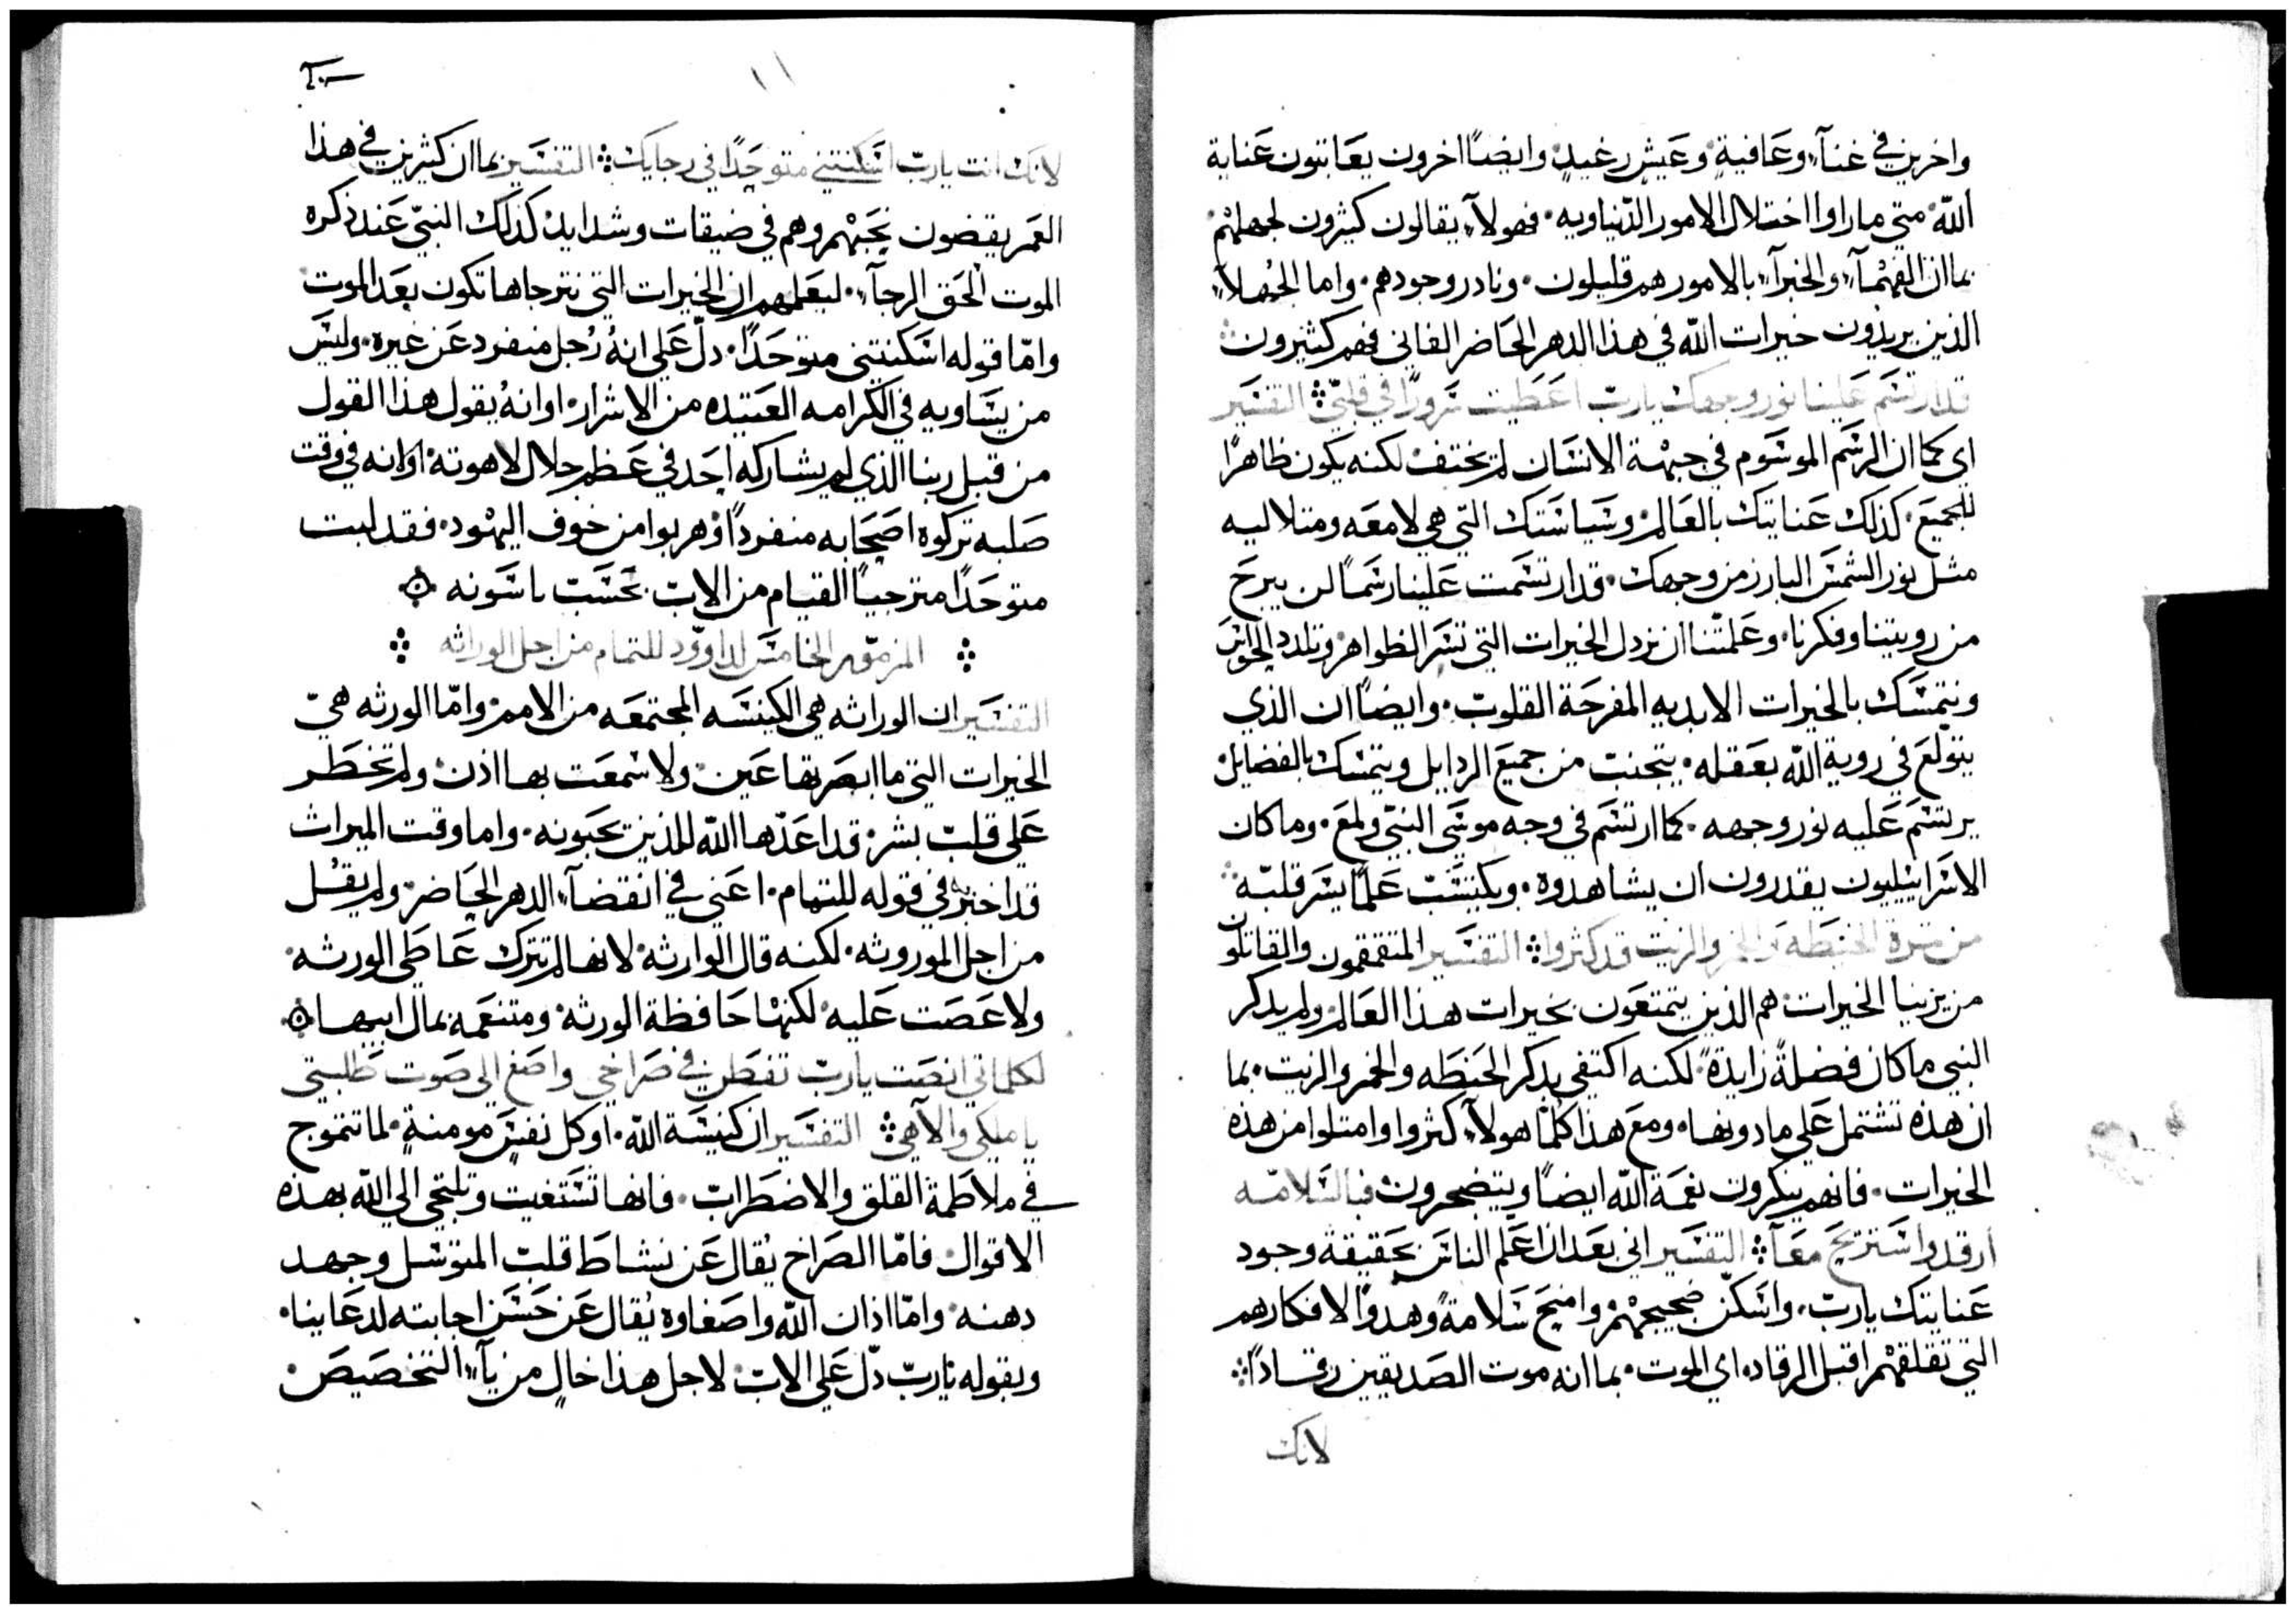 واخرين في غنآء وعافيةٍ وعيشٍ رغيدٍ وايضًا اخرون يعاتبون عناية
الله متي ما راوا اختلال الامور الدنياويه. فهولآء يقالون كثيرون لجهلهم
بما ان الفهمآء والخبرآء بالامور هم قليلون. ونادر وجودهم. واما الجهلآء
الذين يريدون خيرات الله في هذا الدهر الحاضر الفاني فهم كثيرون
قد ارتسم علينا نور وجهك يارب اعطيت سرورًا في قلبي ؞ التفسير
اي كما ان الرسم الموسوم في جبهة الانسان لم يختف لكنه يكون ظاهرًا
للجميع. كذلك عنايتك بالعالم وسياستك التي هي لامعه ومتلاليه
مثل نور الشمس البارز من وجهك. قد ارتسمت علينا رسمًا لن يبرح
من رويتنا وفكرنا. وعلمتنا ان نزدل الخيرات التي تسر الظواهر وتلدد الحواس
ونتمسك بالخيرات الابديه المفرحة القلوب. وايضًا ان الذي
يتولع في روية الله بعقله. يتجنب من جميع الردايل ويتمسك بالفضايل
يرتسم عليه نور وجهه. كما ارتسم في وجه موسى النبي ولمع. وما كان
الاسراييليون يقدرون ان يشاهدوه. ويكتسب علمًا يسر قلبه
من ثمرة الحنطه والخمر والزيت قد كثروا ؞ التفسير المتقمقمون والقاتلون
من يرينا الخيرات هم الذين يتمتعون بخيرات هذا العالم ولم يدكر
النبي ماكان فضلةً زايدةً لكنه اكتفي بدكر الحنطه والخمر والزيت. بما
ان هذه تشتمل علي ما دونها. ومع هذا كلما هولآء كثروا وامتلوا من هذه
الخيرات. فانهم ينكرون نعمة الله ايضًا ويتضجرون فبالسلامه
ارقد واستريح معآ ؞ التفسير اني بعد ان اعلم الناس بحقيقة وجود
عنايتك يارب. واسكن ضجيجهم وامنح سلامةً وهدوًا لافكارهم
التي تقلقهم اقبل الرقاد. اي الموت. بما انه موت الصديقين رقادًا ؞
لانك
١١
لانك انت يارب اسكنتني متوحدًا في رجايك ؞ التفسير بما ان كثيرين في هذا
العمر يقضون نحبهم وهم في ضيقات وشدايد كذلك النبي عند ذكره
الموت الحق الرجآء. ليعلمهم ان الخيرات التي نترجاها تكون بعد الموت
وامّا قوله اسكنتني متوحدًا. دلّ علي انهُ رُجل منفرد عن غيره. وليس
من يساويه في الكرامه العتيده من الاشرار. او انهُ يُقول هذا القول
من قبل ربنا الذي لم يشاركه احد في عظم جلال لاهوته. او انه في وقت
صلبه تركوه اصحابه منفردًا وهربوا من خوف اليهود. فقد لبت
متوحدًا مترجيًا القيام من الاب بحسب ناسوته
المزمور الخامس لداوود للتمام من اجل الوراثه
التفسير ان الوراثه هي الكنيسه المجتمعه من الامم وامّا الورثه هيّ
الخيرات التي ما ابصرتها عين ولا سمعت بها اذن ولم تخطر
علي قلب بشر قد اعدّها الله للذين يحبونه. واما وقت الميراث
قد اخبر به في قوله للتمام. اعني في انقضآء الدهر الحاضر ولم يقُل
من اجل الموروثه. لكنه قال الوارثه لانها لم تترك عاطي الورثه
ولا عصت عليه لكنها حافظة الورثه ومتنعمه بمال ابيها
لكلماتي انصت يارب تفطن في صراخي واصغ الي صوت طلبتي
يا ملكي والآهي ؞ التفسير ان كنيسة الله. او كل نفسٍ مومنةٍ. لما تتموج
في ملاطمة القلق والاضطراب. فانها تستغيت وتلتجي الي الله بهذه
الاقوال فامّا الصراخ يُقال عن نشاط قلب المتوسل وجهد
دهنه. وامّا اذان الله واصغاوه يُقال عن حسن اجابته لدعاينا.
وبقوله يارب دلّ علي الاب لاجل هذا خالٍ من يآء التخصيص